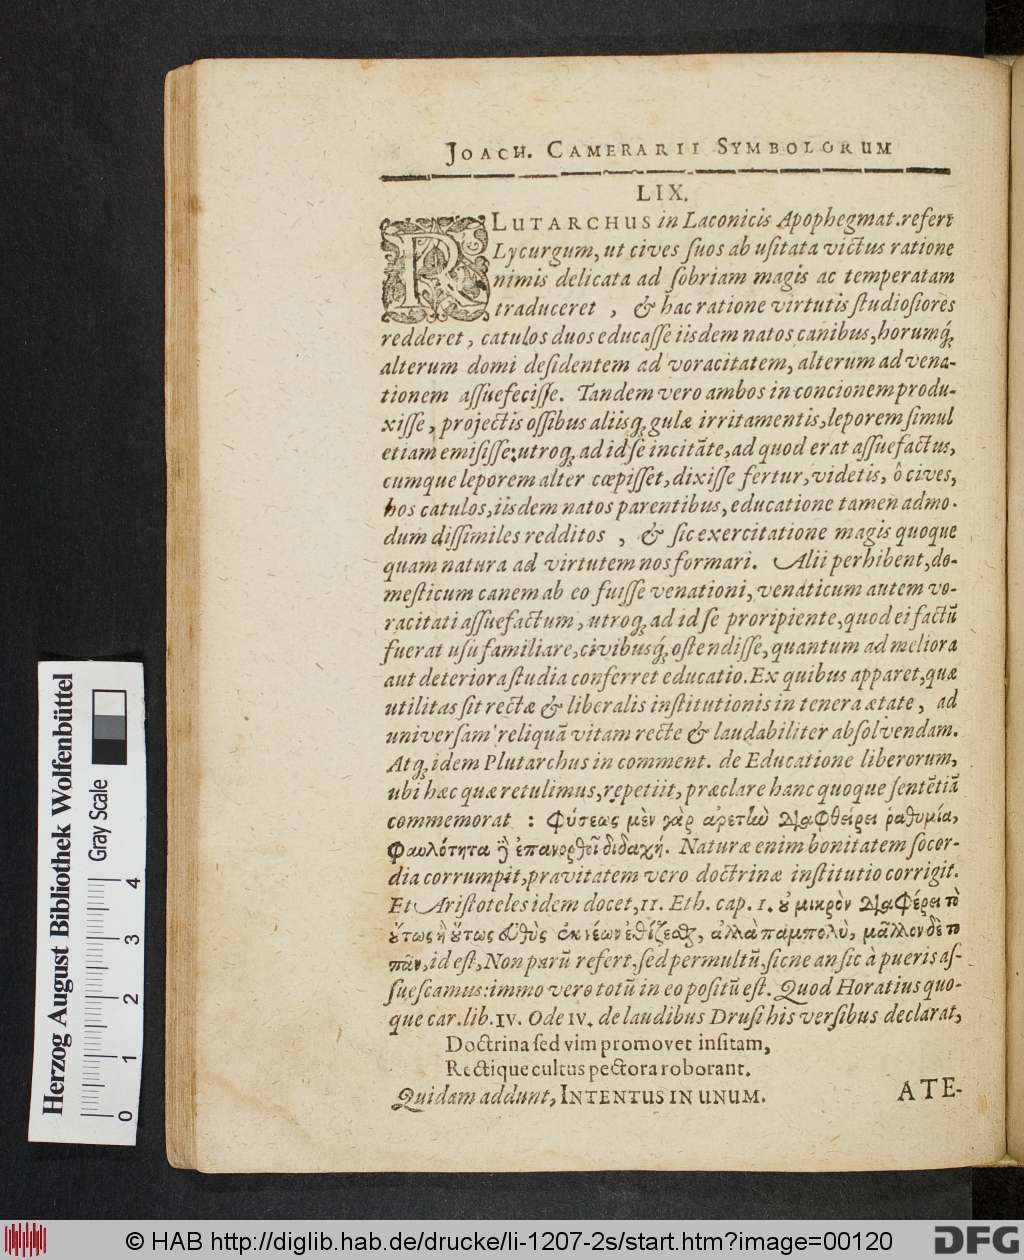 JOACH. CAMERARII SYMBOLORUM
LIX.
PLUTARCHUS in Laconicis Apophegmat. refert
Lycurgum, ut cives suos ab usitata victus ratione
nimis delicata ad sobriam magis ac temperatam
traduceret, & hac ratione virtutis studiosiores
redderet, catulos duos educasse iisdem natos canibus, horumq́;
alterum domi desidentem ad voracitatem, alterum ad vena-
tionem assuefecisse. Tandem vero ambos in concionem produ-
xisse, projectis ossibus aliisq; gulæ irritamentis, leporem simul
etiam emisisse: utroq; ad id se incitāte, ad quod erat assuefactus,
cumque leporem alter cœpisset, dixisse fertur, videtis, ô cives,
hos catulos, iisdem natos parentibus, educatione tamen admo-
dum dissimiles redditos, & sic exercitatione magis quoque
quam natura ad virtutem nos formari. Alii perhibent, do-
mesticum canem ab eo fuisse venationi, venaticum autem vo-
racitati assuefactum, utroq; ad id se proripiente, quod ei factū
fuerat usu familiare, civibusq́; ostendisse, quantum ad meliora
aut deteriora studia conferret educatio. Ex quibus apparet, quæ
utilitas sit rectæ & liberalis institutionis in tenera ætate, ad
universam reliquā vitam recte & laudabiliter absolvendam.
Atq; idem Plutarchus in comment. de Educatione liberorum,
ubi hæc quæ retulimus, repetiit, præclare hanc quoque sentētiā
commemorat: φύσεως μὲν γὰρ ἀρετὴν διαφθείρει ῥαθυμία,
φαυλότητα δὲ ἐπανορθοῖ διδαχή. Naturæ enim bonitatem socor-
dia corrumpit, pravitatem vero doctrinæ institutio corrigit.
Et Aristoteles idem docet, 11. Eth. cap. 1. οὐ μικρὸν διαφέρει τὸ
οὕτως ἢ οὕτως εὐθὺς ἐκ νέων ἐθίζεσθαι, ἀλλὰ πάμπολυ, μᾶλλον δὲ τὸ
πᾶν, id est, Non parū refert, sed permultū, sicne an sic à pueris as-
suescamus: immo vero totū in eo positū est. Quod Horatius quo-
que car. lib. IV. Ode IV. de laudibus Drusi his versibus declarat,
Doctrina sed vim promovet insitam,
Rectique cultus pectora roborant.
Quidam addunt, INTENTUS IN UNUM.
ATE-
Herzog August Bibliothek Wolfenbüttel
Gray Scale
0 1 2 3 4
© HAB http://diglib.hab.de/drucke/li-1207-2s/start.htm?image=00120
DFG